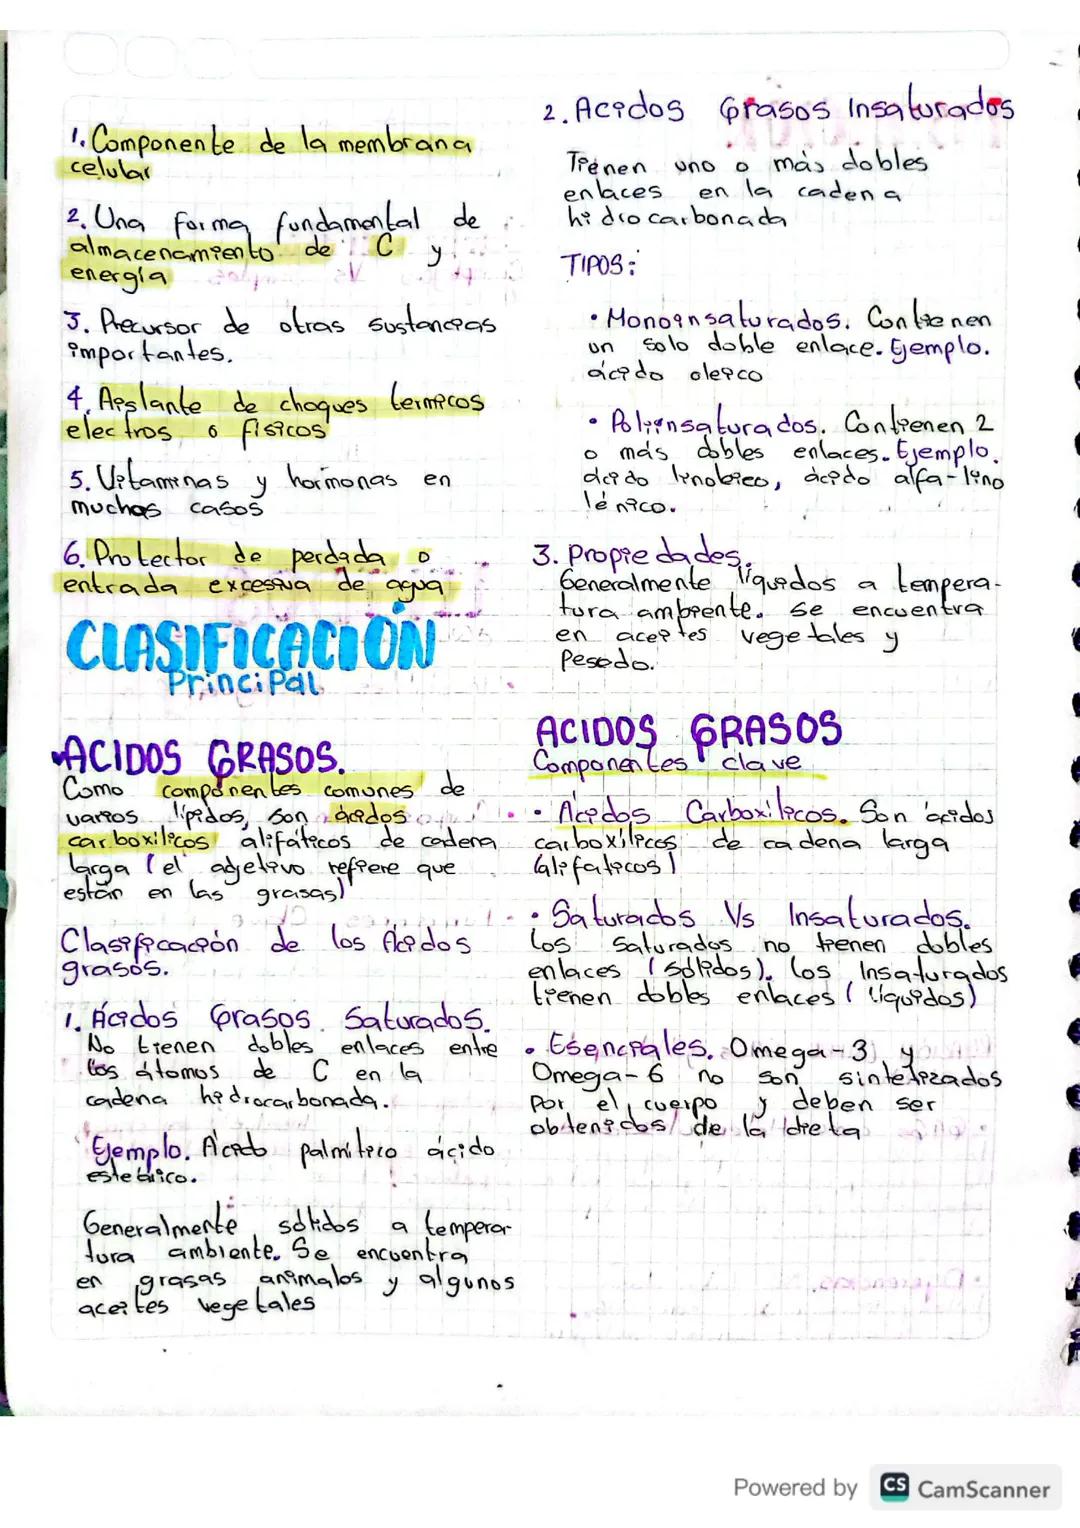 1. Componente de la membrana
celular
2. Una forma fundamental de
almacenamiento de C y
energía
3. Precursor de otras sustancias
importantes.
4. Aislante de choques termicos
electros o fisicos
5. Vitaminas y hormonas en
muchos casos
6. Protector de perdada o
entrada excesiva de agua
CLASIFICACIÓN
Principal
ACIDOS GRASOS.
Como componentes comunes de
varios lípidos, son ácidos
carboxílicos alifáticos de cadena
larga (el adjetivo refiere que
están en las grasas)
Clasificación de los Acidos
grasos.
1. Ácidos Grasos Saturados.
No tienen dobles enlaces entre
los átomos de C en la
cadena hidrocarbonada.
Ejemplo. Ácido palmítico ácido
Generalmente sólidos a tempera-
tura ambiente. Se encuentra
en grasas animalos y algunos
aceites vegetales
2. Acidos Grasos Insaturados
Tienen uno o más dobles
enlaces en la cadena
hidrocarbonada
TIPOS:
• Monoinsaturados. Contienen
un solo doble enlace. Ejemplo.
ácido oleico
• Poliinsaturados. Contienen 2
o más dobles enlaces. Ejemplo.
ácido ácido alfa-lino
lénico.
3. Propiedades.
Generalmente líquidos a tempera-
tura ambiente. Se encuentra
en aceites vegetales y
Pesado.
ACIDOS GRASOS
Componentes clave
• Acidos Carboxílicos. Son ácidos
carboxílicos de cadena larga
(alifaticos)
• Saturados Vs Insaturados.
Los saturados no tienen dobles
enlaces (sólidos). Los Insaturados
tienen dobles enlaces (líquidos)
• Esenciales. Omega-3 y
Omega-6 no son sintetizados
Por el cuerpo y deben ser
obtenidos de la dieta
Powered by CS CamScanner